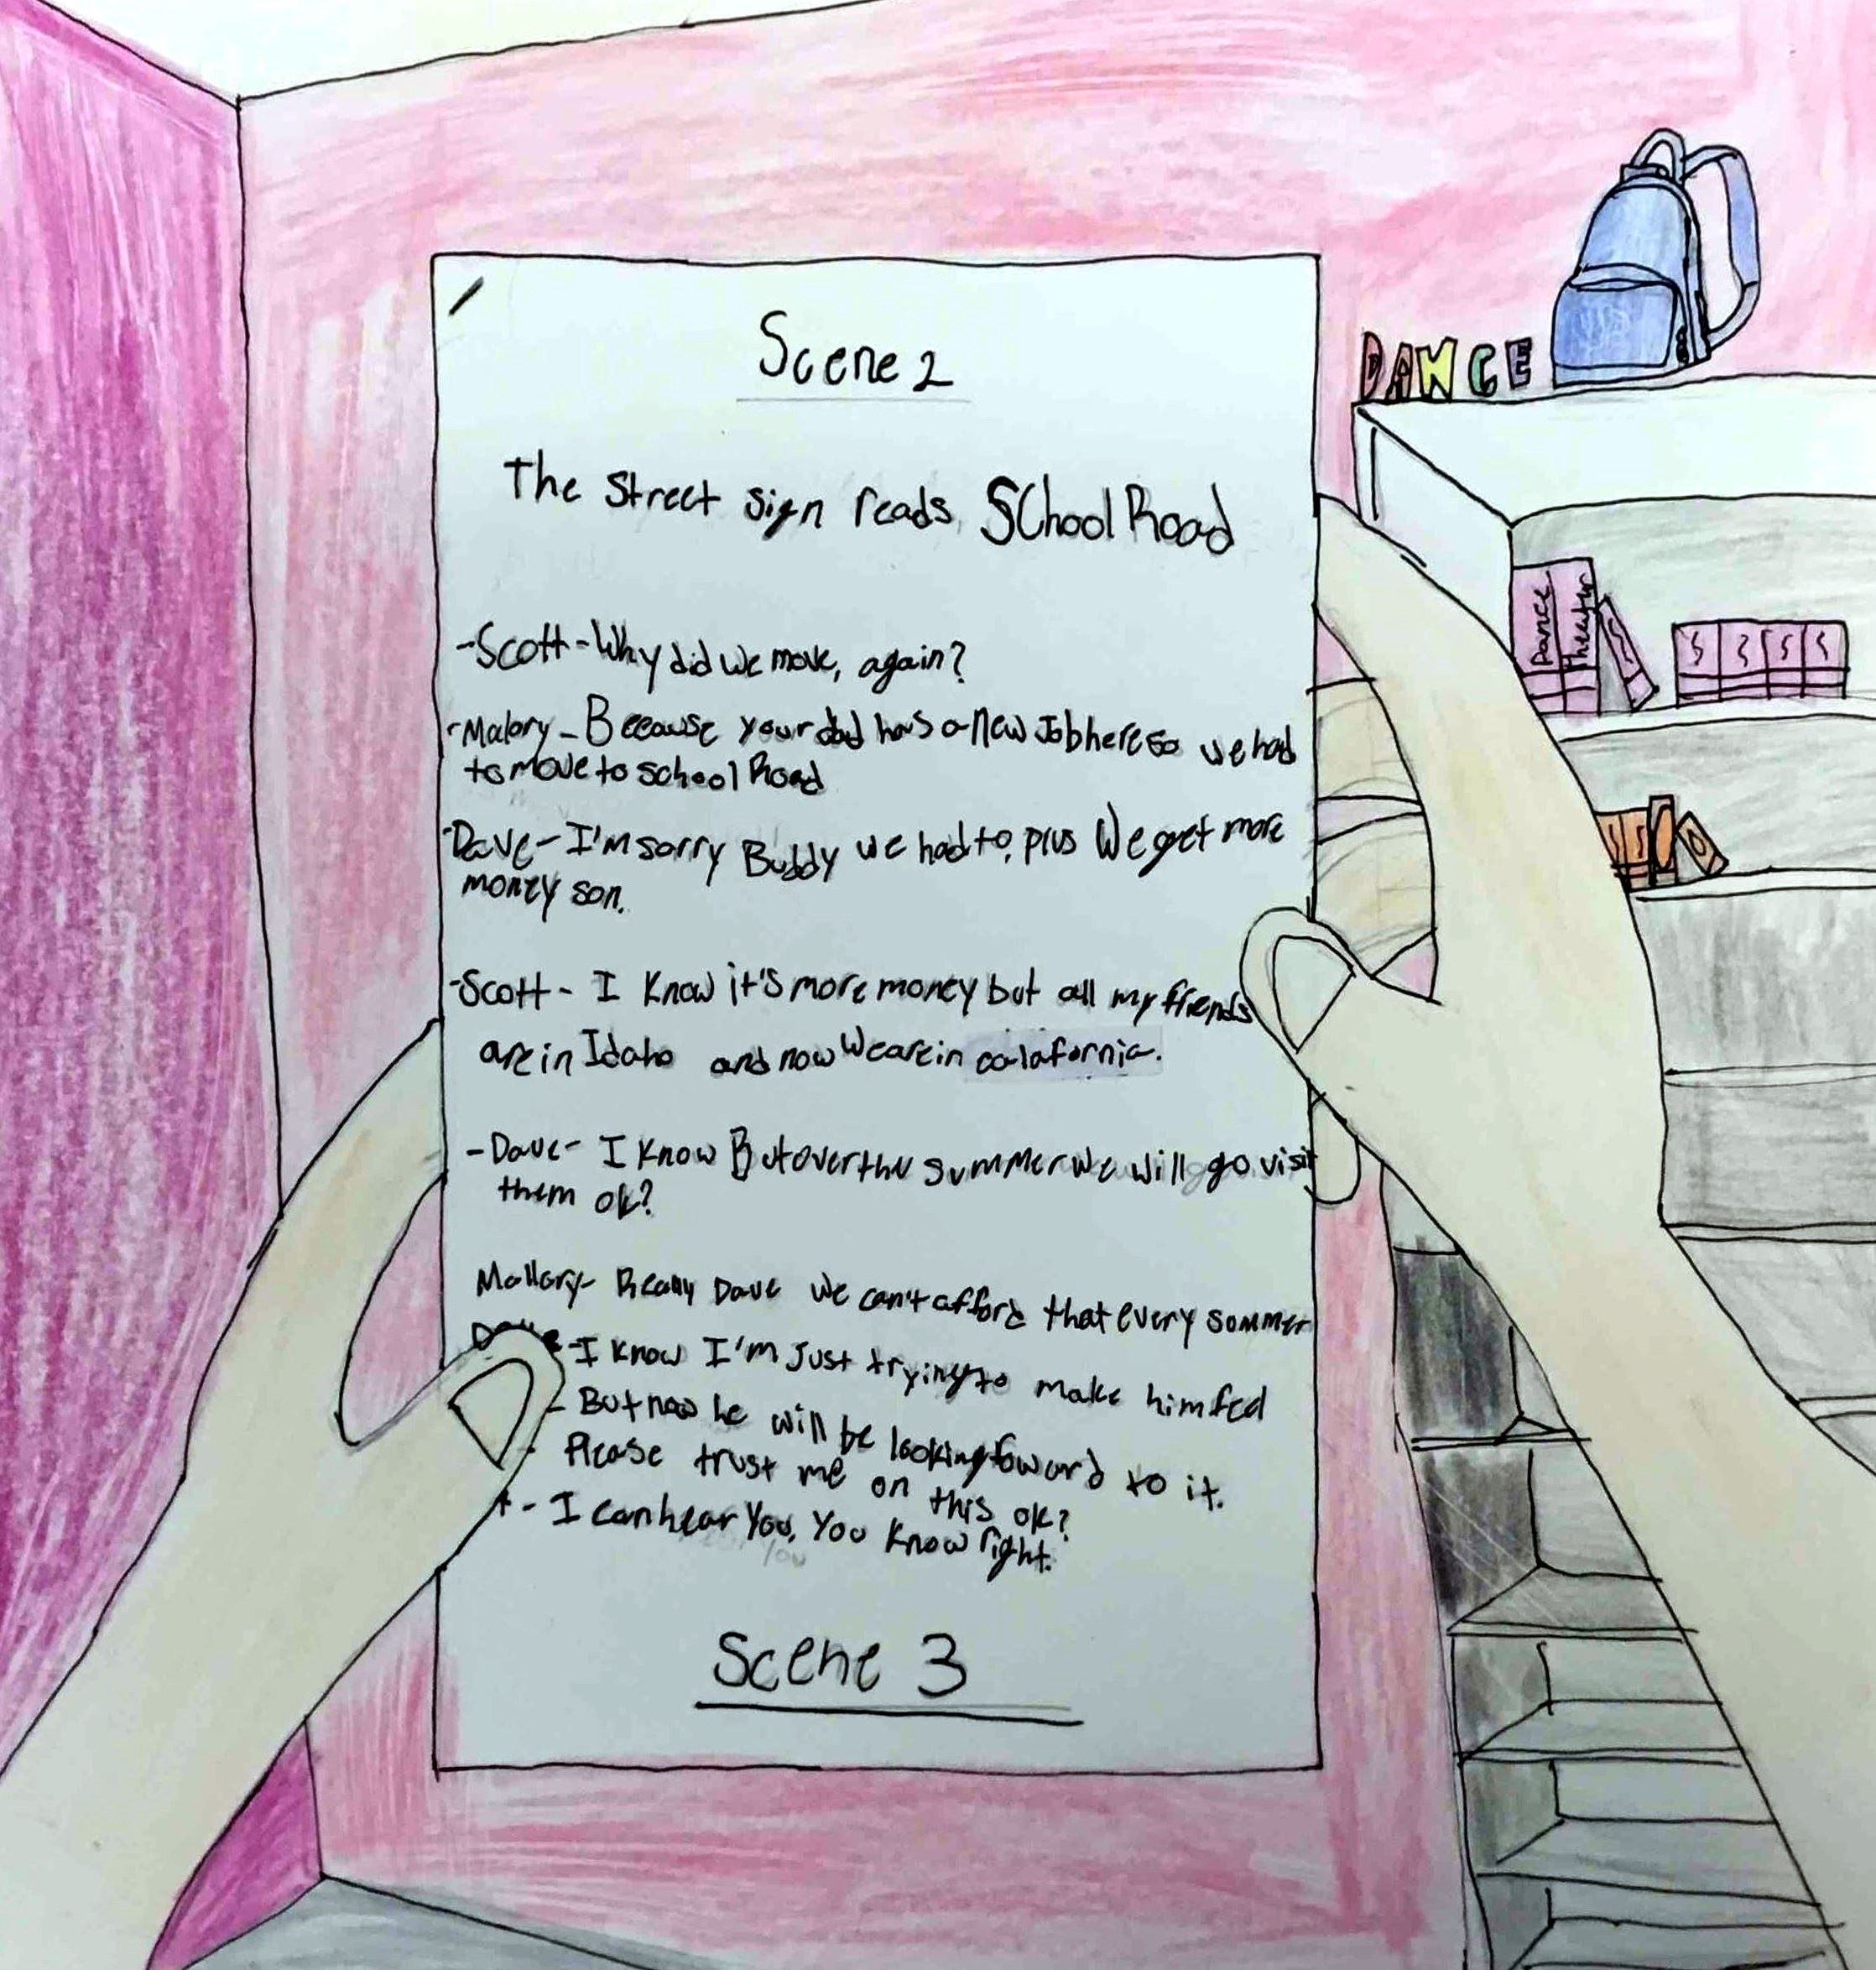 Scene 2
The Street sign reads, SChool Road
-Scott-Why did we move, again?
-Malory-Because your dad has a new Job here so we had
to move to school Road
-Dave-I'm sorry Buddy we had to, plus We get more
money son.
-Scott- I Know it's more money but all my friends
are in Idaho and now We are in calafornia.
-Dave- I Know But over the summer we will go visit
them ok?
Mallory- Really Dave we can't afford that every sommer
-I know I'm Just trying to make him feel
- But now he will be looking foward to it.
Please trust me on this ok?
t- I can hear You, You know right.
Scene 3
DANCE
Dance
Theater